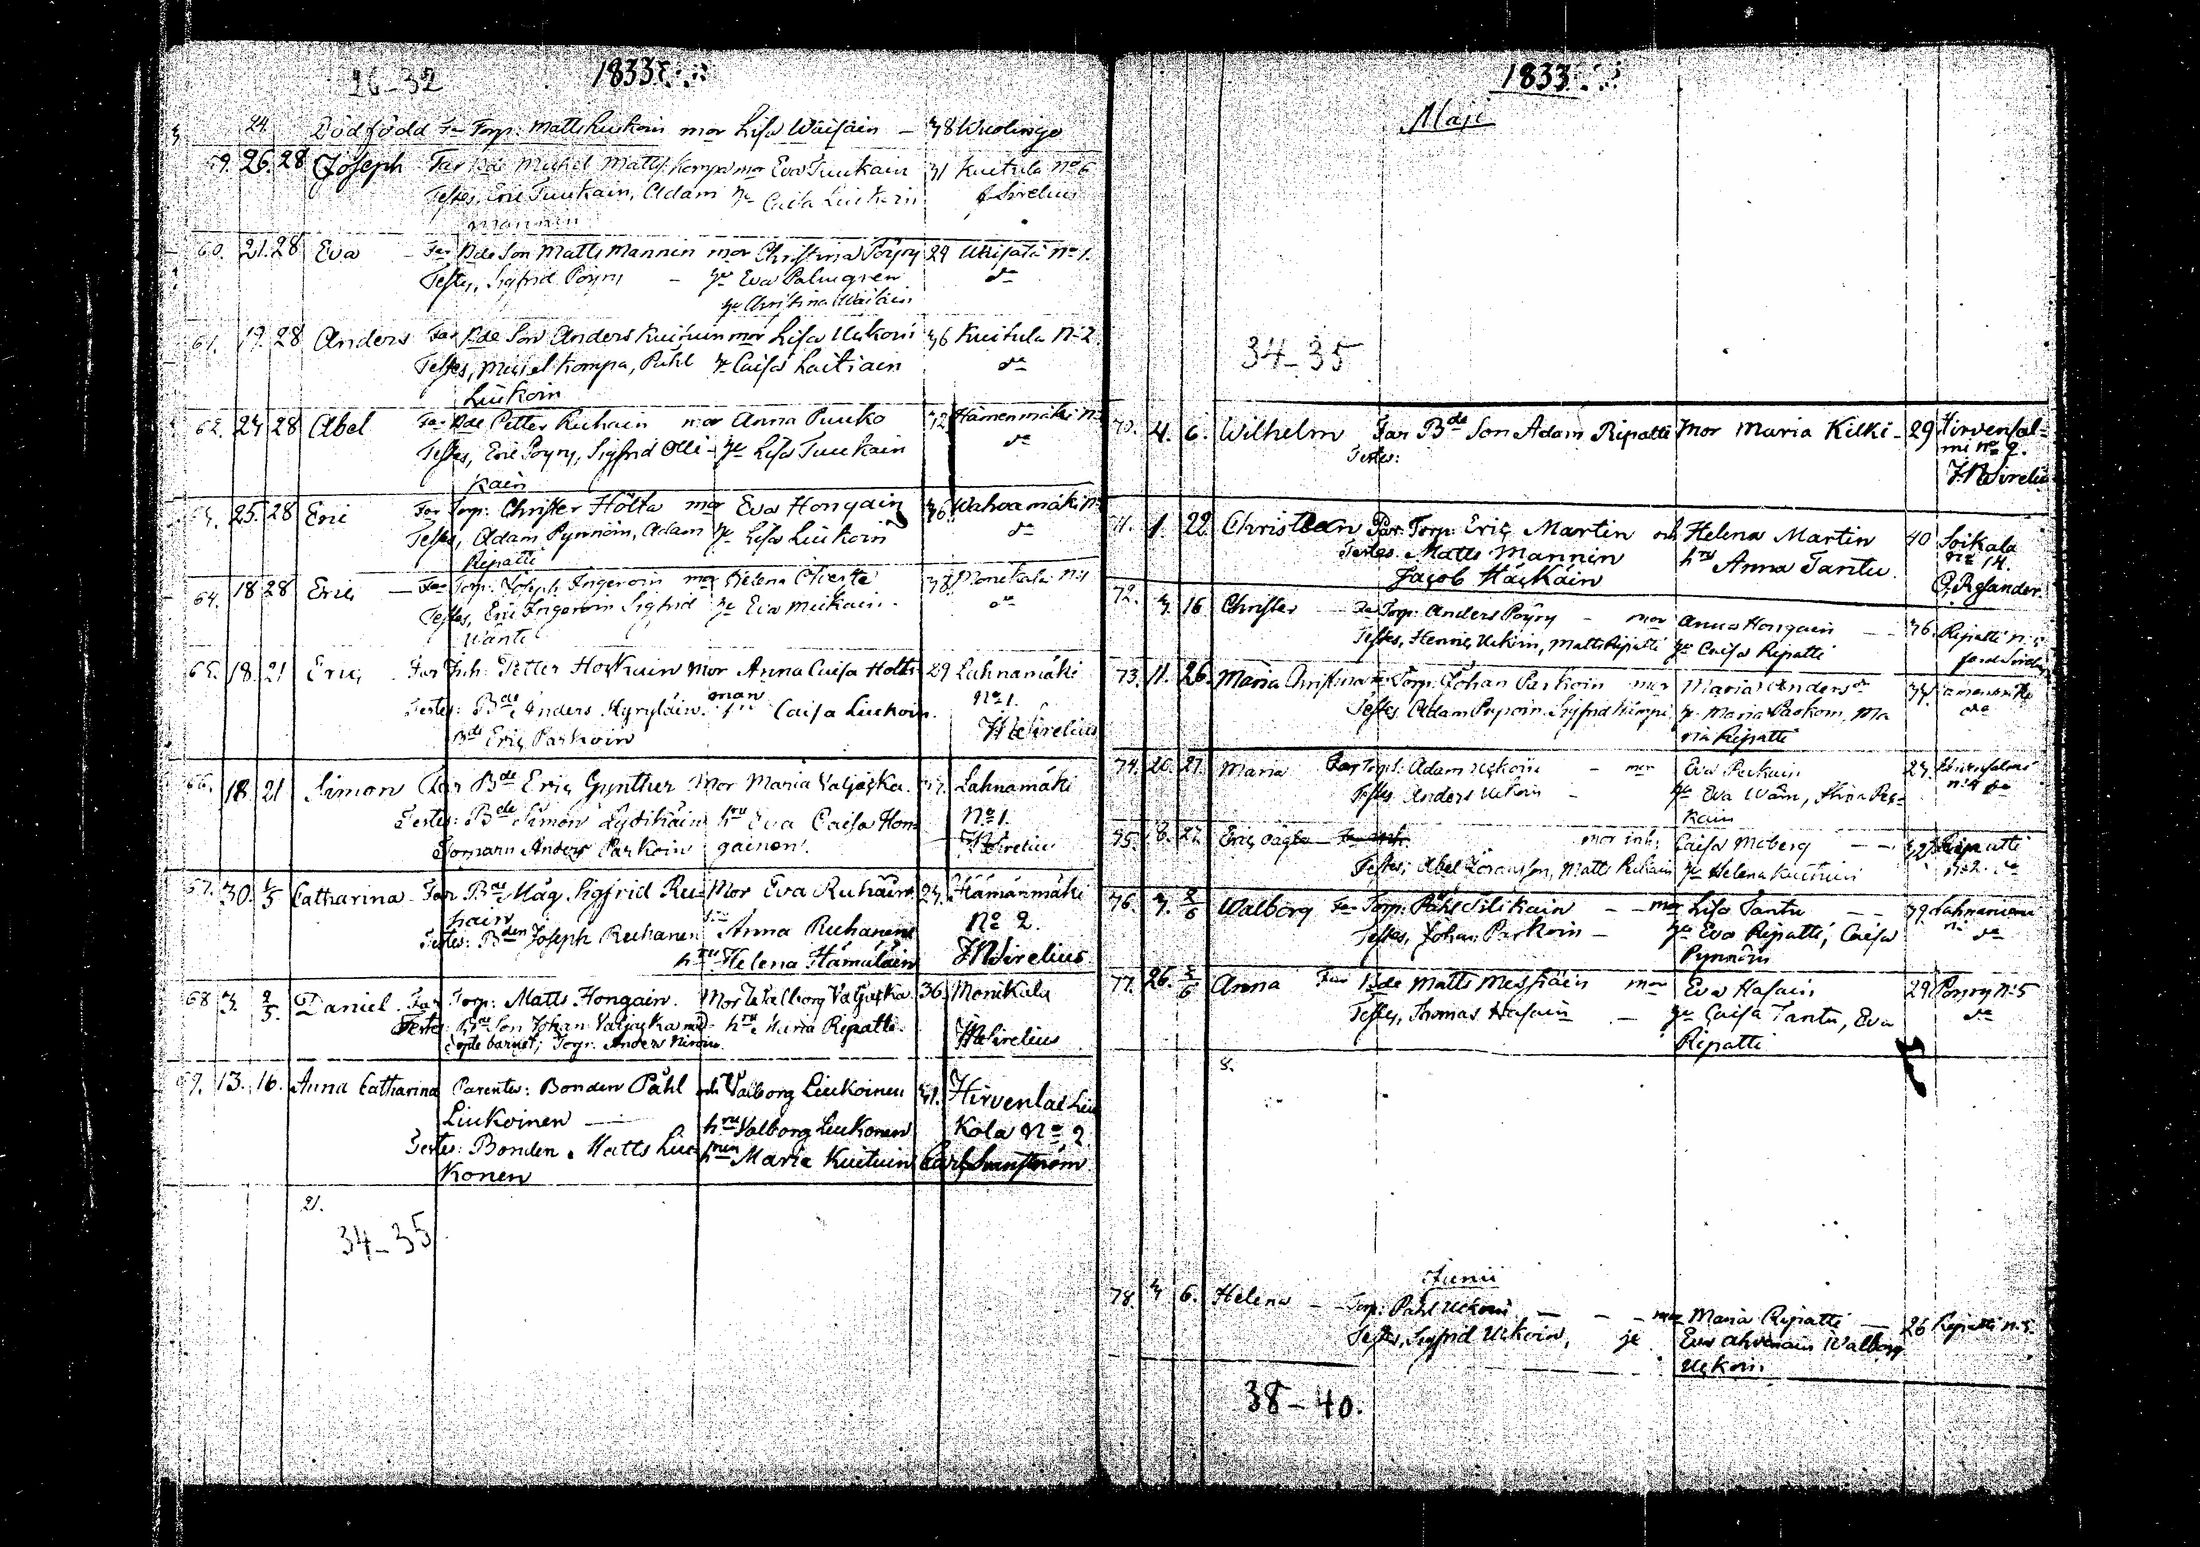 26-32 1833
24. Dödfödd Far Torp: Matts Liukoin mor Lisa Wäisäin 38 Wuolingo
59. 26. 28 Joseph Far Bde Michel Matts. Kompa mor Eva Tuukain 31 Kuitula No 6
Testes, Eric Tuukain, Adam hu Caisa Liukoin Sirelius
Mannin
60. 21. 28 Eva Far Bde Son Matts Mannin mor Christina Pöyry 29 No 1.
Testes, Sigfrid Pöyry hu Eva Palmgren do
hu Christina Wäisäin
61. 19. 28 Anders Far Bde Son Anders Kuituin mor Lisa Uckoin 36 Kuitula No 2
Testes, Michel Kompa, Påhl hu Caisa Laitiain do
Liukoin
62. 24 28 Abel Far Bde Petter Ruhain mor Anna Puuko 42 Hämenmäki No
Testes, Eric Pöyry, Sigfrid Olli- hu Lisa Tuukain do
kain
25. 28 Eric Far Torp: Christer Hölta mor Eva Hongain 36 Wahvamäki No
Testes, Adam Pynnöin, Adam hu Lisa Liukoin do
Ripatti
64. 18 28 Eric Far Torp: Joseph Ingeroin mor Helena 38 Monikala No 1
Testes, Eric Ingeroin Sigfrid hu Eva Muikain do
Wänti
65. 18. 21 Eric Far Inh: Petter Horkuin Mor Anna Caisa Holts 29 Lahnamäki
man No 1.
Testes: Bde Anders Hyryläin. hru Caisa Liukoin.
Bde Eric Parkoin JWSirelius
66. 18. 21 Simon Far Bde Eric Gynther Mor Maria Valjacka. Lahnamäki
Testes: Bde Simon Lydikäin hru Eva Caisa Hon No 1.
Tomarn Anders Parkoin gainen. JWSirelius
67. 30. 1/5 Catharina Far Bde Måg Sigfrid Ru- Mor Eva Ruhain 24. Hämänmäki
hain No 2.
Testes: Bden Joseph Ruhanen Anna Ruhanen
hru Helena Hämäläin JWSirelius
68 3. 2/5. Daniel Far Torp: Matts Hongain. Mor Walborg Valjacka. 36. Monikala
Testes Bde Son Johan Valjacka nöd- hru Maria Ripatti.
döpte barnet; Torp. Anders JWSirelius
69. 13. 16. Anna Catharina Parentes: Bonden Påhl och Valborg Liukoinen 41. Hirvenlas Liu
Liukoinen hru Valborg Liukonen kola No 2
Testes: Bonden Matts Liu- hmn Maria Kuituin Carl Svanström
konen
21.
34-35
1833
Maji
34-35
70. 4. 6. Wilhelm Far Bde Son Adam Ripatti Mor Maria Kilki 29 Hirvensal-
Testes: mi No 2.
JWSirelius
71. 1. 22 Christian Far Torp. Eric Martin och Helena Martin 40 Soikala
Testes Matts Mannin hru Anna Tantu. No 14.
Jacob Häckäin
72. 3. 16 Christer Far Torp: Anders Pöyry mor Anna Hongain 36. Ripatti No
Testes, Henric Uckoin, Matts Ripatti hu Caisa Ripatti
73. 11. 26. Maria Christina Far Torp: Johan Parkoin mor Maria Anders dr
Testes Adam Sigfrid Kämpi, hu Maria Paskoin, Ma do
ria Ripatti
74. 20. 27 Maria Far Torp: Adam Uckoin mor Eva Packain 27. Hirvensalmi
Testes Anders Uckoin hu Eva Wäin, Stina Pac-
kain
75. 8. 27. Eric oägta mor inh. Caisa Moberg 32 Ripatti
Testes; Abel Göransson, Matts Ruhain hu Helena Kuituin No 2.
76. 3. 2/6 Walborg Far Torp. Påhl Silikain mor Lisa Tantu 39. Lahnaniemi
Testes, Johan Parkoin hu Eva Ripatti, Caisa do
Pynnöin
77. 26. 2/6 Anna Far Bde Matts Messiäin mor Eva Hasain 29 Pöyry No 5
Testes, Thomas Hasain hu Caisa Tantu, Eva do
Ripatti
8.
Junii
78. 3 6. Helena Torp: Påhl Uckoin mor Maria Ripatti 26 Ripatti No 5.
Testes, Sigfrid Uckoin, hu Eva Ahvenain Walborg
Uckoin
38-40.